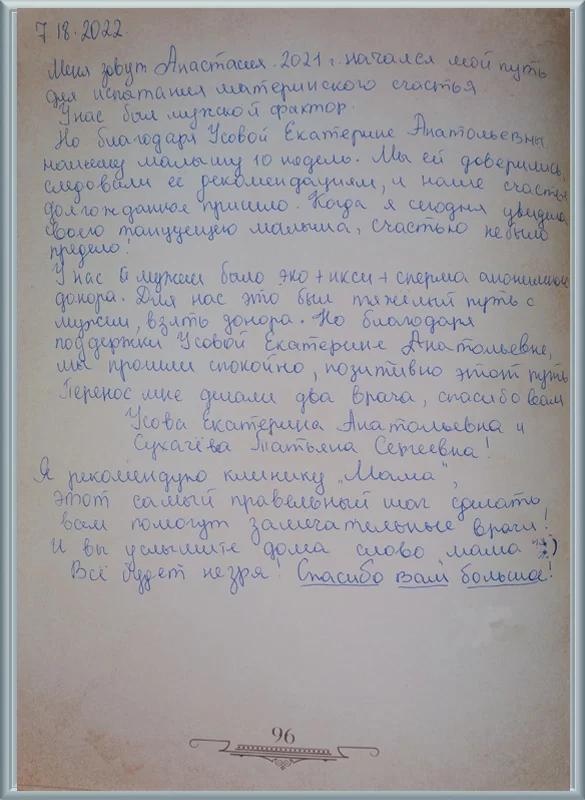 7 18.2022.
Меня зовут Анастасия. 2021 г. начался мой путь
для испатания материнского счастья.
У нас был мужской фактор.
Но благодаря Усовой Екатерине Анатольевны,
нашему малышу 10 недель. Мы ей доверились,
следовали её рекомендациям, и наше счастье
долгожданное пришло. Когда я сегодня увидела
своего танцующего малыша, счастью не было
предело!
У нас с мужем было эко+икси+сперма анонимного
донора. Для нас это был тяжёлый путь с
мужем, взять донора. Но благодаря
поддержки Усовой Екатерине Анатольевне,
мы прошли спокойно, позитивно этот путь
Перенос мне делали два врача, спасибо вам
Усова Екатерина Анатольевна и
Сухачёва Татьяна Сергеевна!
Я рекомендую клинику „Мама",
этот самый правельный шаг сделать
вам помогут замечательные врачи!
И вы услышите дома слово мама :)
Всё будет незря! Спасибо вам большое!
96